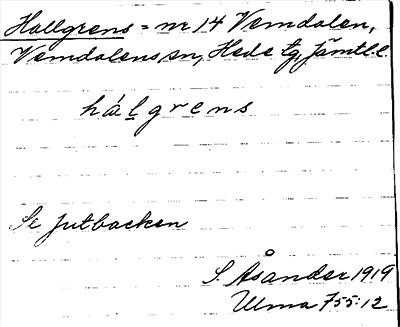 Hallgrens = nr 14 Vemdalen,
Vemdalens sn, Hede tg, Jämtl. l.
hálgrens
Se Jutbacken
S. Åsander 1919
Ulma 755:12